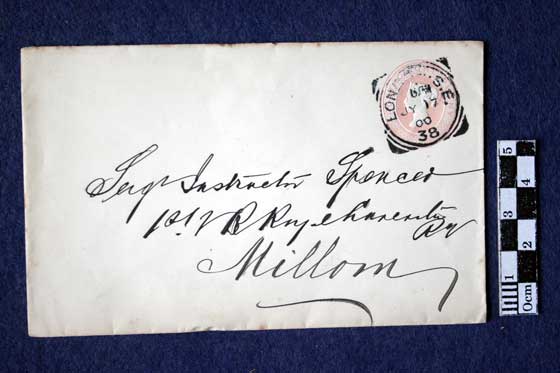 LONDON.S.E.
JY 17
00
38
Sergt Instructor Spencer
1st V B Royal Lancaster
Rgt
Millom
5
4
3
2
1
0cm